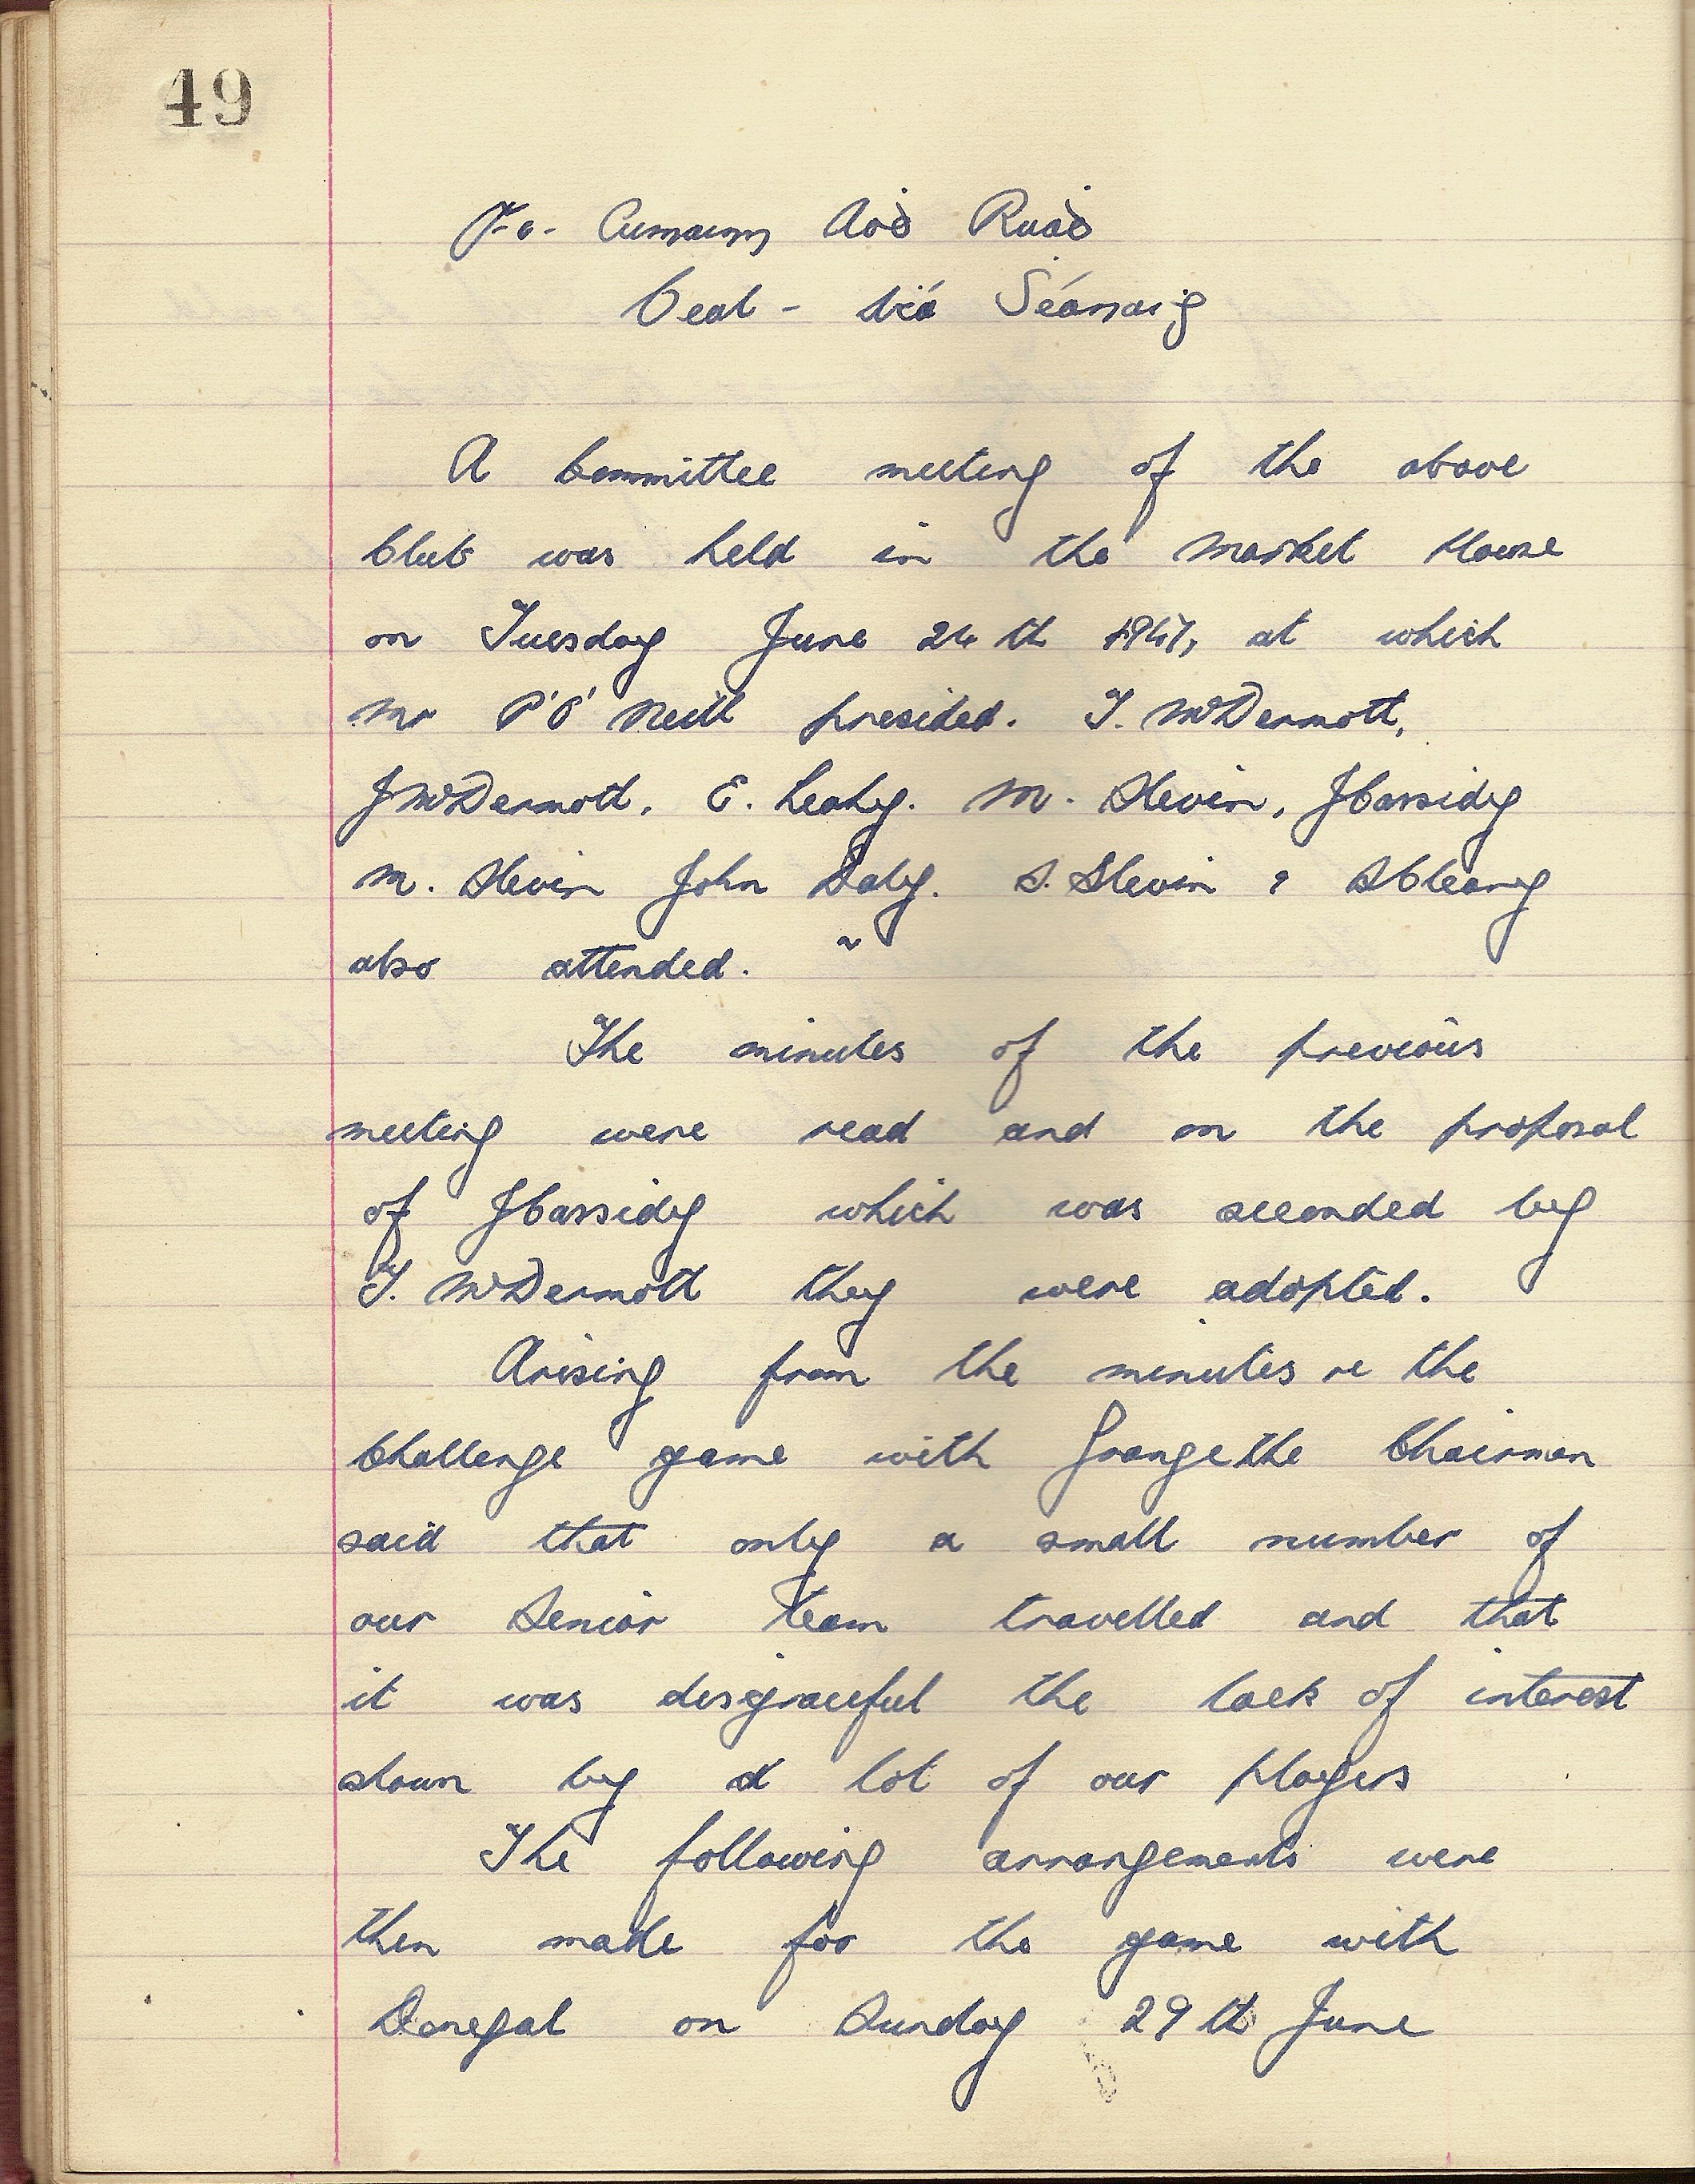 49
Cumainn Aoḋ Ruaḋ
Beal - Áṫa Seanaiġ
A Committee meeting of the above
Club was held in the Market House
on Tuesday June 24th 1947, at which
Mr P O'Neill presided. T. McDermott,
J McDermott, E. Leahy. M. Slevin, J Cassidy
M. Slevin John Daly. S. Slevin & S Cleary
also attended.
The minutes of the previous
meeting were read and on the proposal
of J Cassidy which was seconded by
T. McDermott they were adopted.
Arising from the minutes re the
Challenge game with Grange the Chairman
said that only a small number of
our Senior team travelled and that
it was disgraceful the lack of interest
shown by a lot of our players
The following arrangements were
then made for the game with
Donegal on Sunday 29th June